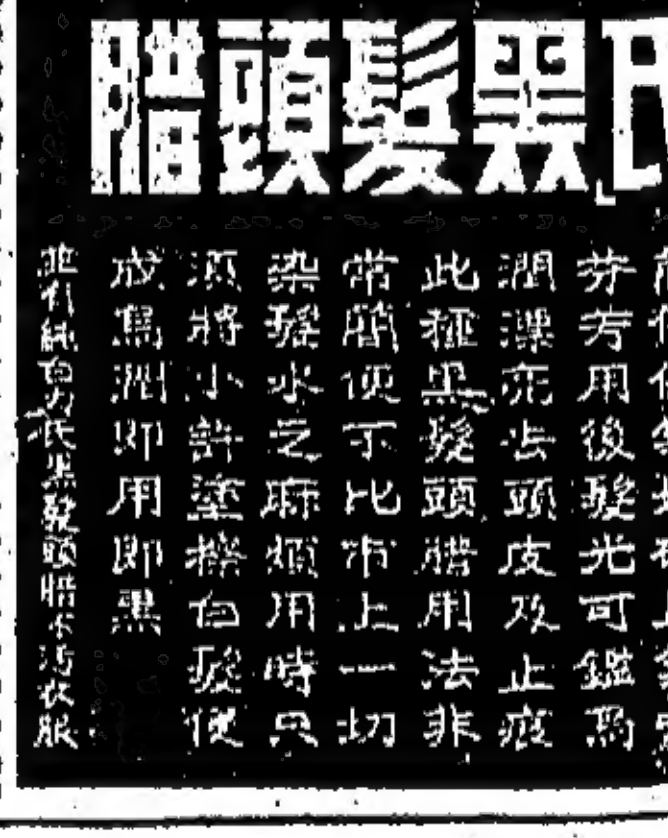 黑髮頭腊
芬芳用後髮光可鑑烏
潤澤亦去頭皮及止痕
此種黑髮頭腊用法非
常簡便不比市上一切
染髮水之麻煩用時只
須將小許塗搽白髮便
成烏潤即用即黑
並有純白力氏黑髮頭腊不污衣服